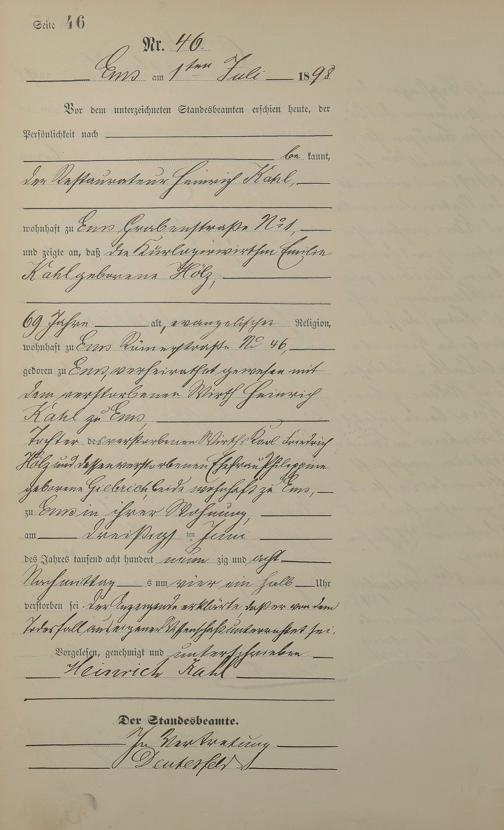 Seite 46
Nr. 46.
Ems am 1ten Juli 1898
Vor dem unterzeichneten Standesbeamten erschien heute, der
Persönlichkeit nach
be kannt,
der Restaurateur Heinrich Kahl,
wohnhaft zu Ems Grabenstraße No 1,
und zeigte an, daß die Kurlogirwirthin Emilie
Kahl geborene Hölz,
69 Jahre alt, evangelischer Religion,
wohnhaft zu Ems Römerstraße No 46,
geboren zu Ems, verheirathet gewesen mit
dem verstorbenen Wirth Heinrich
Kahl zu Ems,
Tochter des verstorbenen Wirths Karl Friedrich
Hölz und dessen verstorbenen Ehefrau Philippine
geborene beide wohnhaft zu Ems,
zu Ems in ihrer Wohnung,
am dreißigsten Juni
des Jahres tausend acht hundert neun zig und acht
Nachmittags um vier ein halb Uhr
verstorben sei. Der Anzeigende erklärte, daß er von dem
Todesfall aus eigener Wissenschaft unterrichtet sei.
Vorgelesen, genehmigt und unterschrieben
Heinrich Kahl
Der Standesbeamte.
In Vertretung